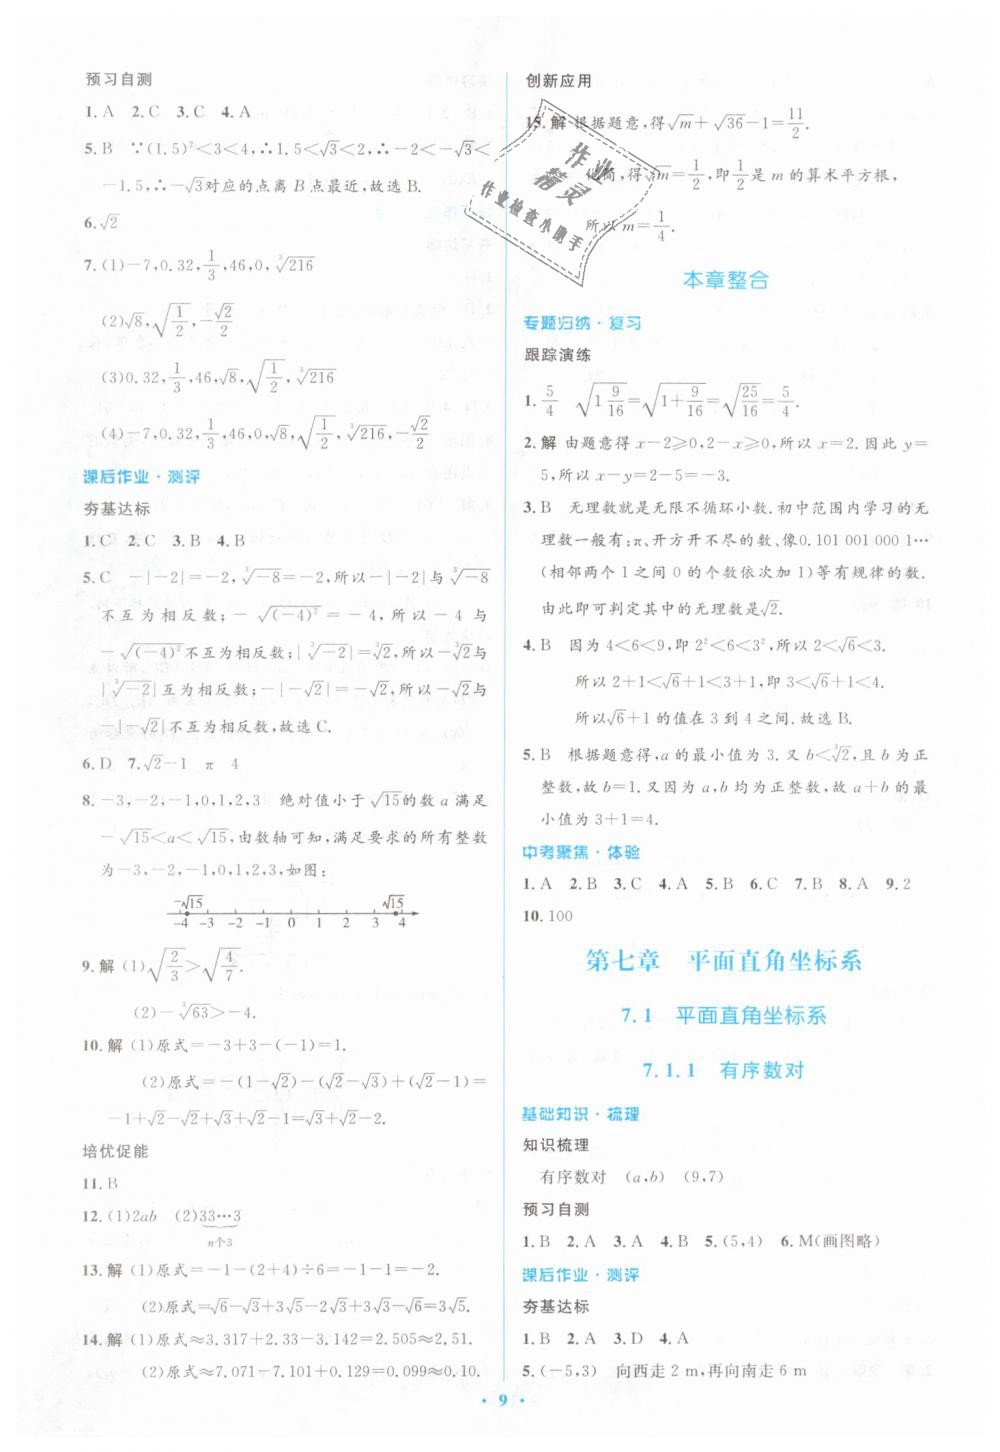 预习自测
1.A 2.C 3.C 4.A
5.B ∵(1.5)²<3<4,∴1.5<√3<2,∴-2<-√3<
-1.5,∴-√3对应的点离B点最近,故选B.
6.√2
7.(1)-7,0.32,1/3,46,0,∛216
(2)√8,√(1/2),-√2/2
(3)0.32,1/3,46,√8,√(1/2),∛216
(4)-7,0.32,1/3,46,0,√8,√(1/2),∛216,-√2/2
课后作业·测评
夯基达标
1.C 2.C 3.B 4.B
5.C -|-2|=-2,∛-8=-2,所以-|-2|与∛-8
不互为相反数;-√(-4)²=-4,所以-4与
-√(-4)²不互为相反数;|∛-2|=∛2,所以-∛2与
|∛-2|互为相反数;-|-√2|=-√2,所以-√2与
-|-√2|不互为相反数,故选C.
6.D 7.√2-1 π 4
8.-3,-2,-1,0,1,2,3 绝对值小于√15的数a满足
-√15<a<√15,由数轴可知,满足要求的所有整数
为-3,-2,-1,0,1,2,3,如图:
-√15 √15
-4 -3 -2 -1 0 1 2 3 4
9.解 (1)√(2/3)>√(4/7).
(2)-∛63>-4.
10.解 (1)原式=-3+3-(-1)=1.
(2)原式=-(1-√2)-(√2-√3)+(√2-1)=
-1+√2-√2+√3+√2-1=√3+√2-2.
培优促能
11.B
12.(1)2ab (2)33…3
n个3
13.解 (1)原式=-1-(2+4)÷6=-1-1=-2.
(2)原式=√6-√3+3√5-2√3+3√3-√6=3√5.
14.解 (1)原式≈3.317+2.33-3.142=2.505≈2.51.
(2)原式≈7.071-7.101+0.129=0.099≈0.10.
创新应用
15.解 根据题意,得√m+√36-1=11/2.
化简,得√m=1/2,即1/2是m的算术平方根,
所以m=1/4.
作业
精灵
作业检查小助手
本章整合
专题归纳·复习
跟踪演练
1.5/4 √(1 9/16)=√(1+9/16)=√(25/16)=5/4.
2.解 由题意得x-2≥0,2-x≥0,所以x=2.因此y=
5,所以x-y=2-5=-3.
3.B 无理数就是无限不循环小数.初中范围内学习的无
理数一般有:π、开方开不尽的数、像0.101 001 000 1…
(相邻两个1之间0的个数依次加1)等有规律的数.
由此即可判定其中的无理数是√2.
4.B 因为4<6<9,即2²<6<3²,所以2<√6<3.
所以2+1<√6+1<3+1,即3<√6+1<4.
所以√6+1的值在3到4之间.故选B.
5.B 根据题意得,a的最小值为3.又b<∛2,且b为正
整数,故b=1.又因为a,b均为正整数,故a+b的最
小值为3+1=4.
中考聚焦·体验
1.A 2.B 3.C 4.A 5.B 6.C 7.B 8.A 9.2
10.100
第七章 平面直角坐标系
7.1 平面直角坐标系
7.1.1 有序数对
基础知识·梳理
知识梳理
有序数对 (a,b) (9,7)
预习自测
1.B 2.A 3.A 4.B 5.(5,4) 6.M(画图略)
课后作业·测评
夯基达标
1.B 2.A 3.D 4.A
5.(-5,3) 向西走2 m,再向南走6 m
· 9 ·